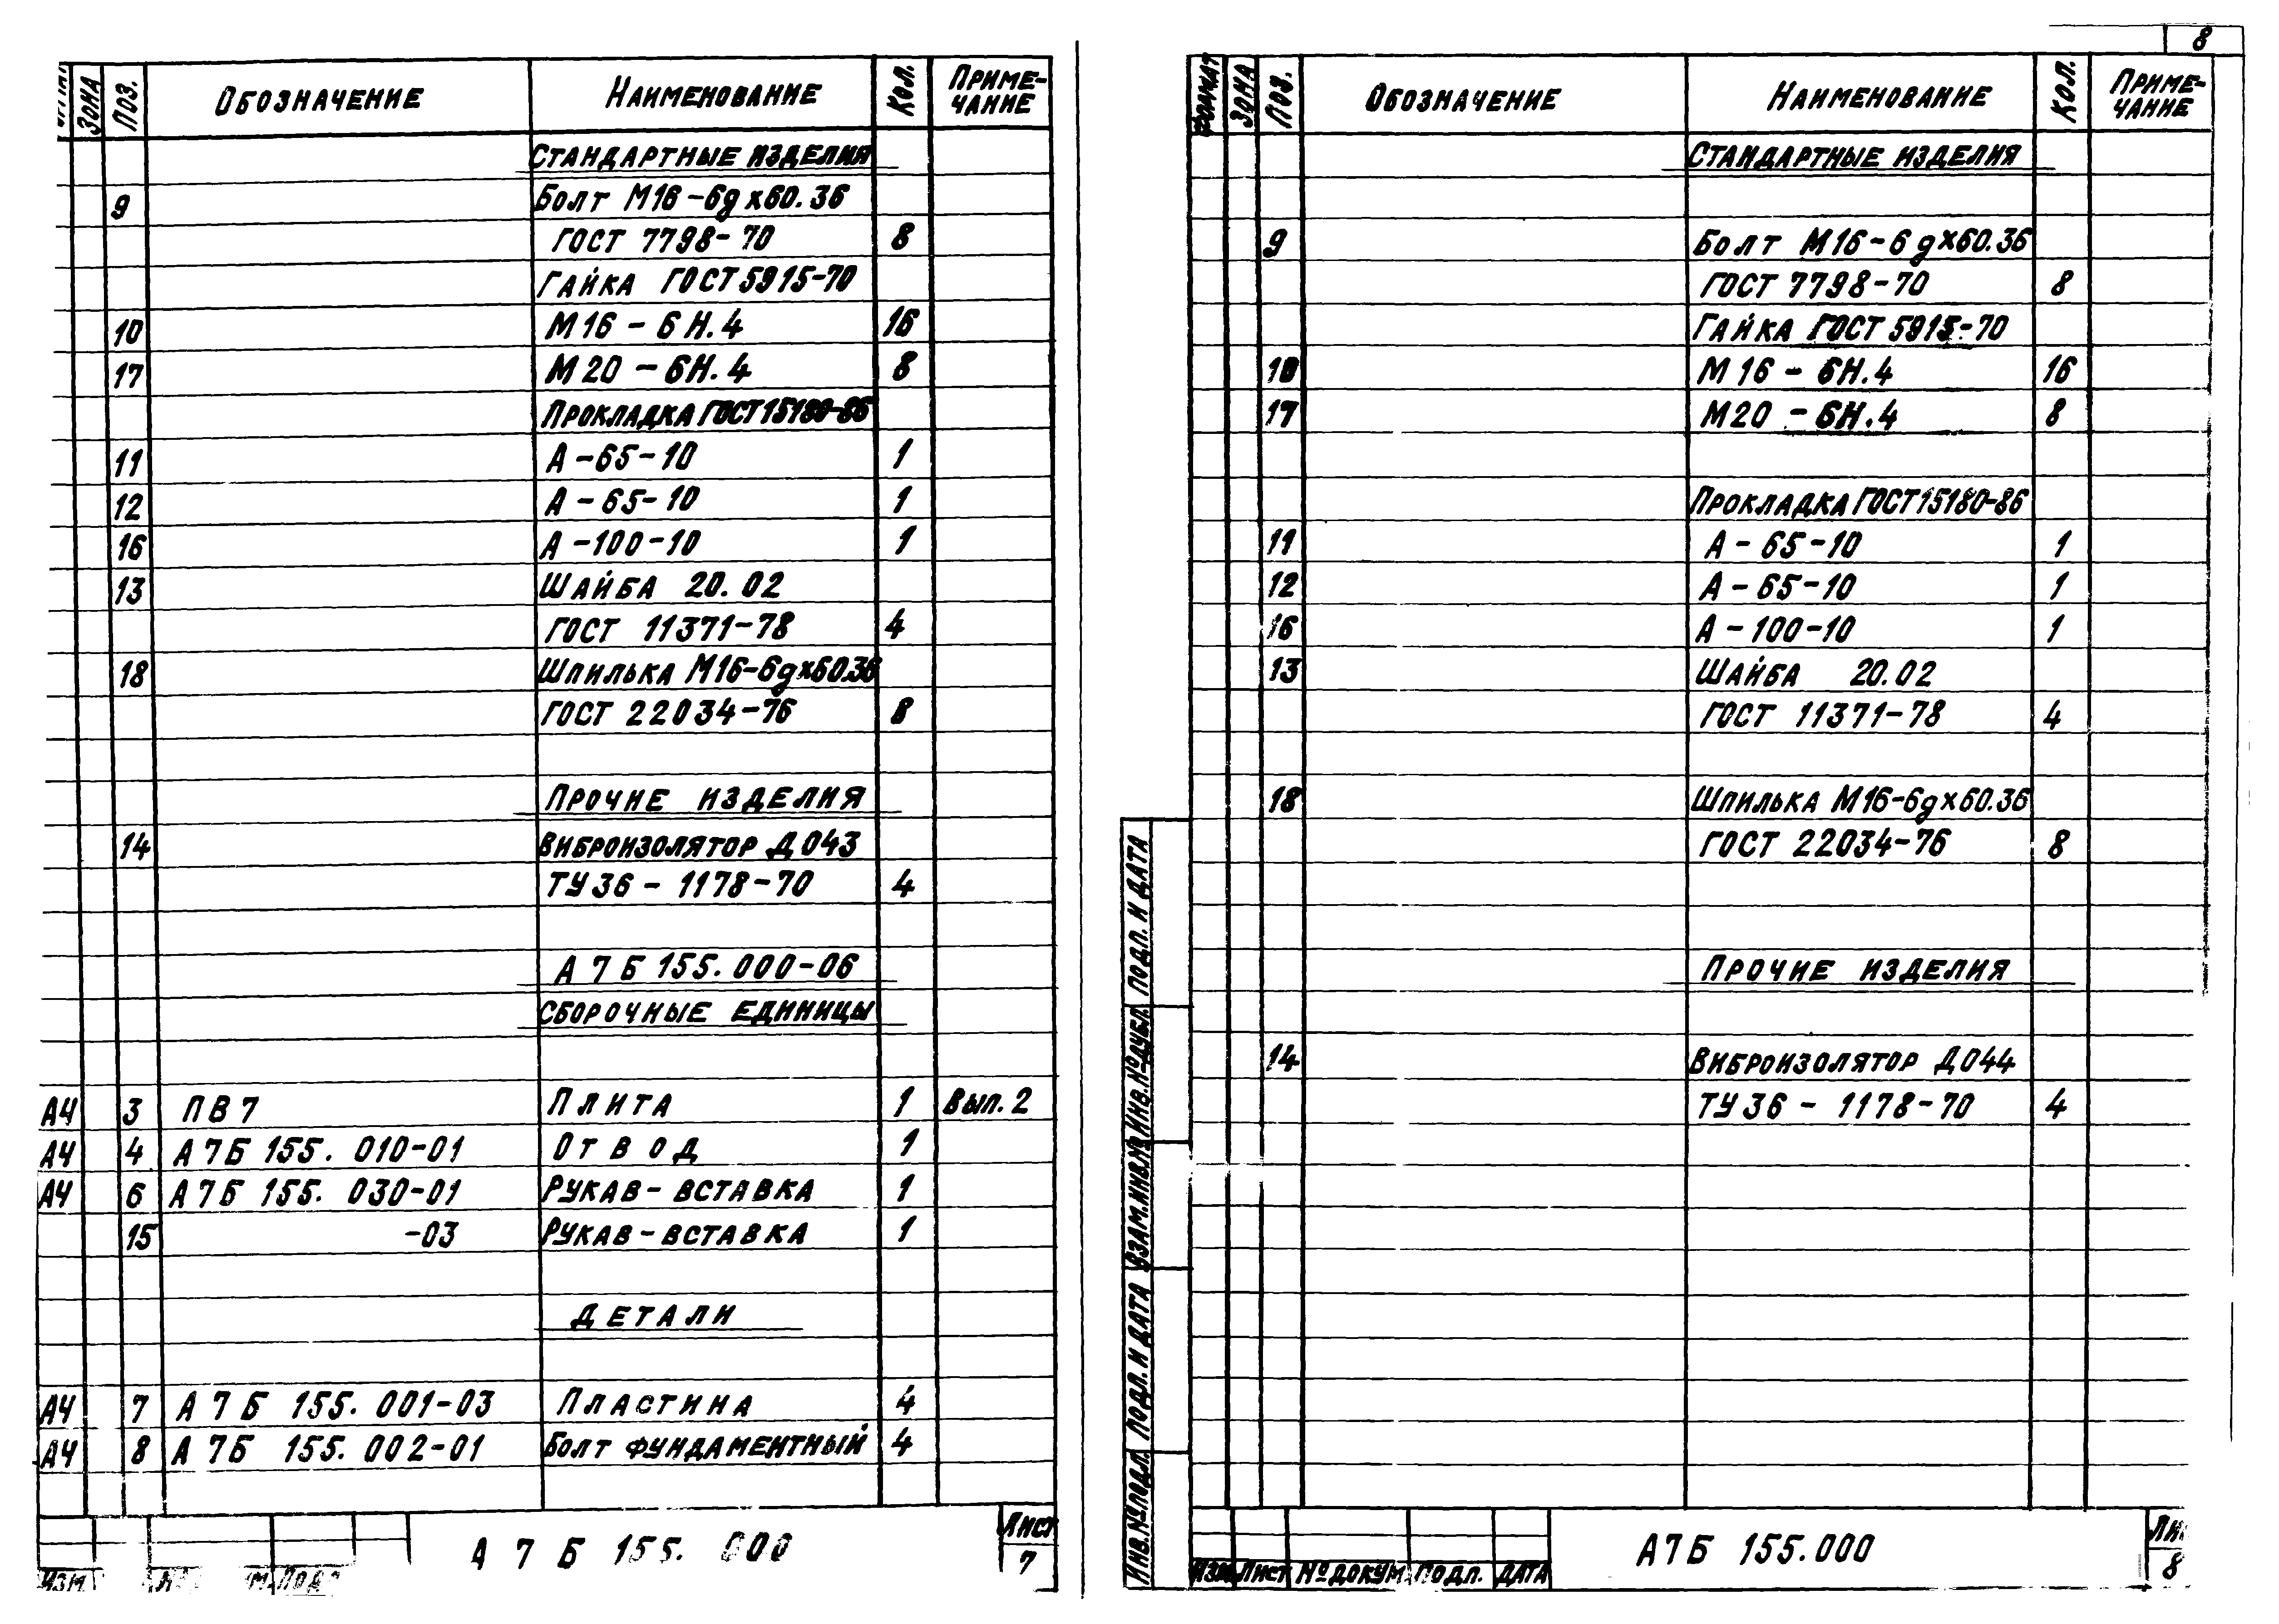 ЗОНА ПОЗ. ОБОЗНАЧЕНИЕ НАИМЕНОВАНИЕ КОЛ. ПРИМЕ-
ЧАНИЕ
СТАНДАРТНЫЕ ИЗДЕЛИЯ
9 БОЛТ М16-6gх60.36
ГОСТ 7798-70 8
ГАЙКА ГОСТ 5915-70
10 М16-6Н.4 16
17 М20-6Н.4 8
ПРОКЛАДКА ГОСТ 15180-86
11 А-65-10 1
12 А-65-10 1
16 А-100-10 1
13 ШАЙБА 20.02
ГОСТ 11371-78 4
18 ШПИЛЬКА М16-6gх60.36
ГОСТ 22034-76 8
ПРОЧИЕ ИЗДЕЛИЯ
14 ВИБРОИЗОЛЯТОР Д043
ТУ36-1178-70 4
А7Б 155.000-06
СБОРОЧНЫЕ ЕДИНИЦЫ
А4 3 ПВ7 ПЛИТА 1 ВЫП. 2
А4 4 А7Б 155. 010-01 ОТВОД 1
А4 6 А7Б 155. 030-01 РУКАВ-ВСТАВКА 1
15 -03 РУКАВ-ВСТАВКА 1
ДЕТАЛИ
А4 7 А7Б 155. 001-03 ПЛАСТИНА 4
А4 8 А7Б 155. 002-01 БОЛТ ФУНДАМЕНТНЫЙ 4
А7Б 155. 000
ЛИСТ
7
ИЗМ.
8
ФОРМАТ ЗОНА ПОЗ. ОБОЗНАЧЕНИЕ НАИМЕНОВАНИЕ КОЛ. ПРИМЕ-
ЧАНИЕ
СТАНДАРТНЫЕ ИЗДЕЛИЯ
9 БОЛТ М16-6gх60.36
ГОСТ 7798-70 8
ГАЙКА ГОСТ 5915-70
10 М16-6Н.4 16
17 М20-6Н.4 8
ПРОКЛАДКА ГОСТ 15180-86
11 А-65-10 1
12 А-65-10 1
16 А-100-10 1
13 ШАЙБА 20.02
ГОСТ 11371-78 4
18 ШПИЛЬКА М16-6gх60.36
ГОСТ 22034-76 8
ПРОЧИЕ ИЗДЕЛИЯ
14 ВИБРОИЗОЛЯТОР Д044
ТУ36-1178-70 4
ИНВ.№ПОДЛ. ПОДЛ. И ДАТА ВЗАМ.ИНВ.№ ИНВ.№ДУБЛ. ПОДЛ. И ДАТА
ИЗМ. ЛИСТ №ДОКУМ. ПОДП. ДАТА
А7Б 155.000
8